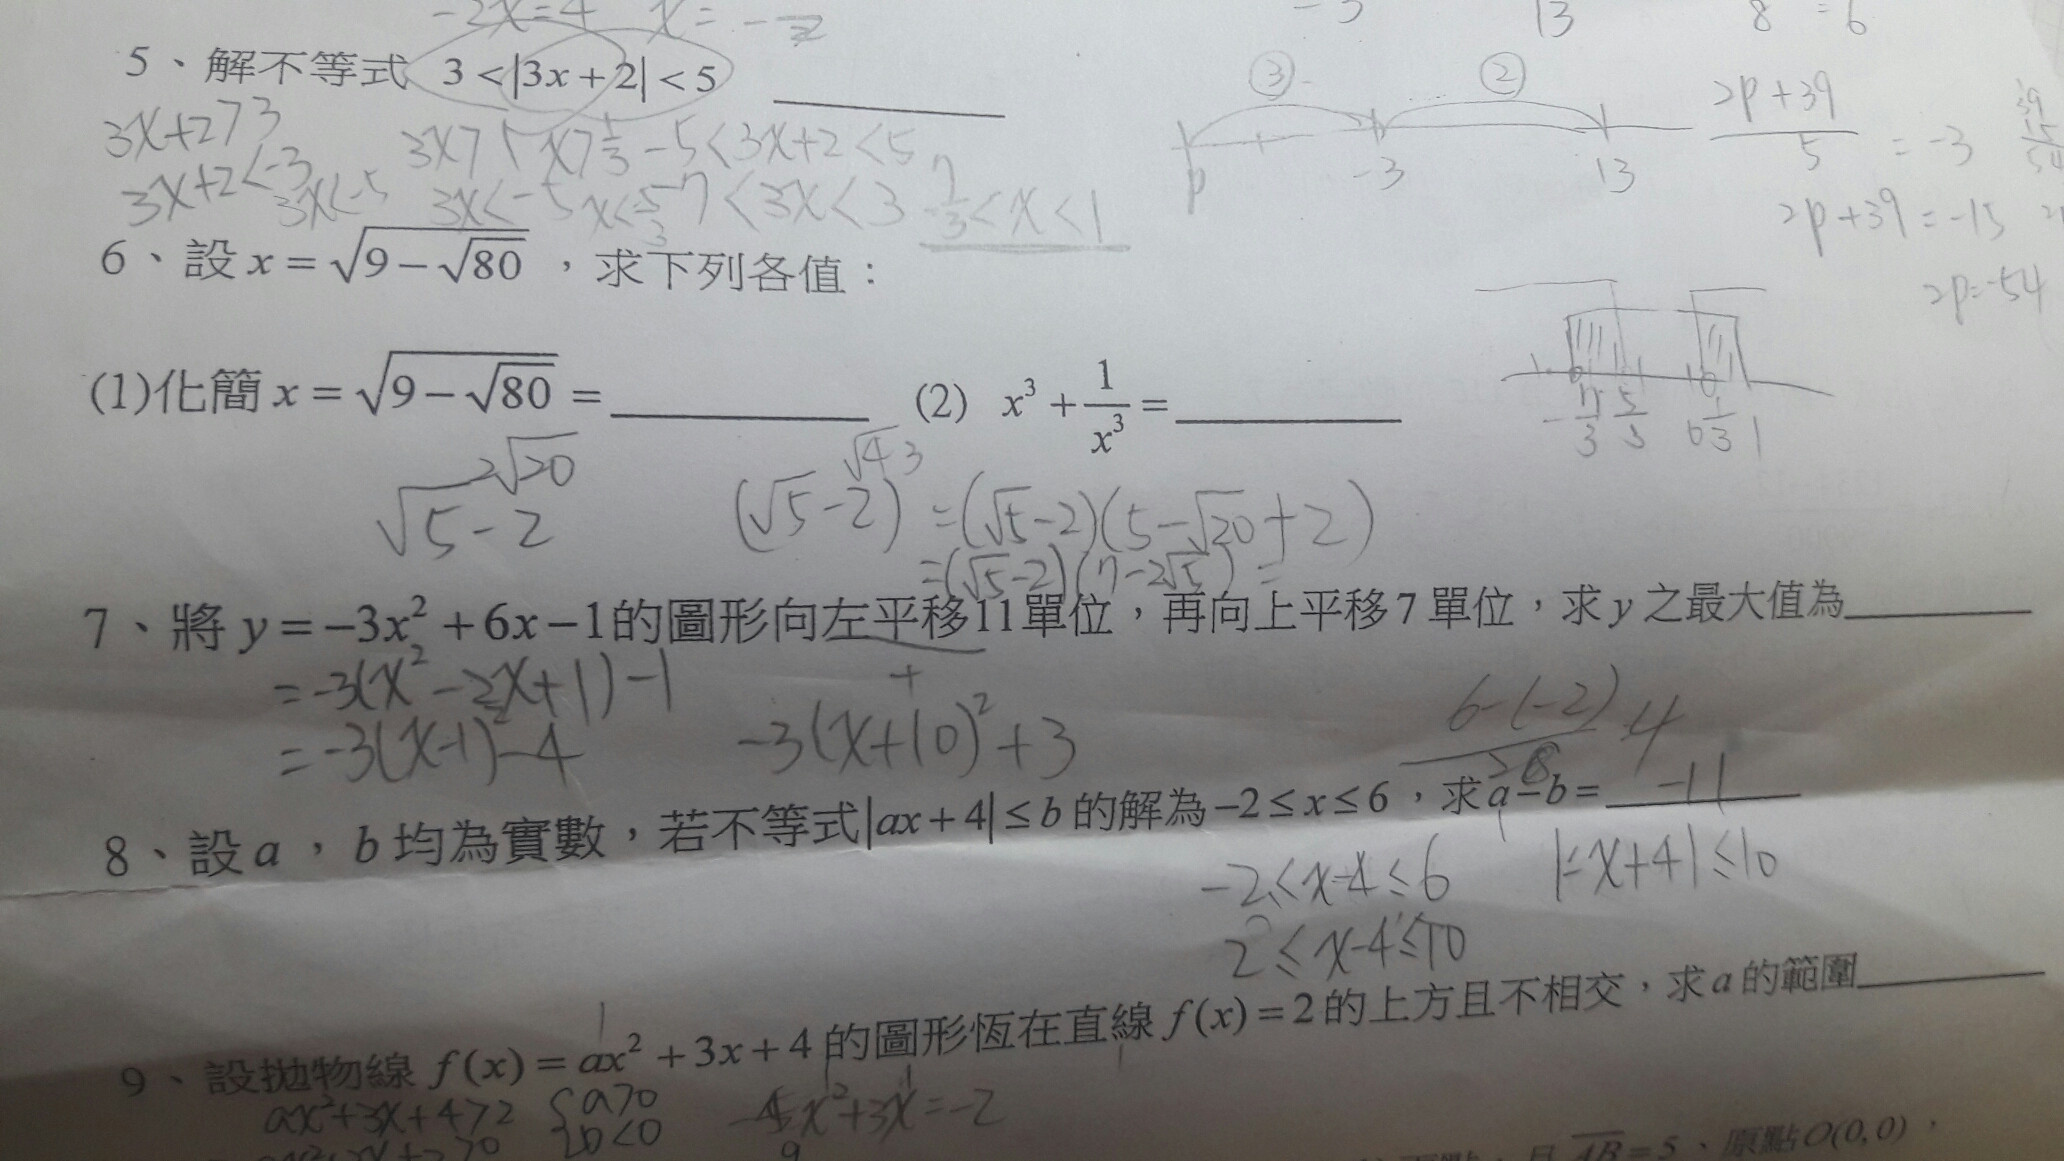 -2x=4 x=-
-3 13 8 =6
5、解不等式 3<|3x+2|<5 ________
3x+2>3 3x>1 x>1/3 -5<3x+2<5
3x+2<-3 3x<-5 3x<-5 x<-5/3 -7<3x<3 -7/3<x<1
③ ②
p -3 13
(2p+39)/5 = -3
2p+39=-15
2p=-54
6、設 x=√(9-√80)，求下列各值：
(1)化簡 x=√(9-√80)=________ (2) x³+1/x³=________
2√20
√5-2
√4
(√5-2)³=(√5-2)(5-√20+2)
=(√5-2)(7-2√5)=
7、將 y=-3x²+6x-1的圖形向左平移11單位，再向上平移7單位，求y之最大值為________
=-3(x²-2x+1)-1 +
=-3(x-1)²-4 -3(x+10)²+3
6-(-2) 4
8
8、設a，b均為實數，若不等式|ax+4|≤b的解為-2≤x≤6，求a-b= -11
-2≤x-4≤6 |-x+4|≤10
2≤x-4≤10
9、設拋物線 f(x)=ax²+3x+4的圖形恆在直線f(x)=2的上方且不相交，求a的範圍________
ax²+3x+4>2 { a>0 x²+3x=-2
D<0
9
且 AB=5、原點O(0,0)，